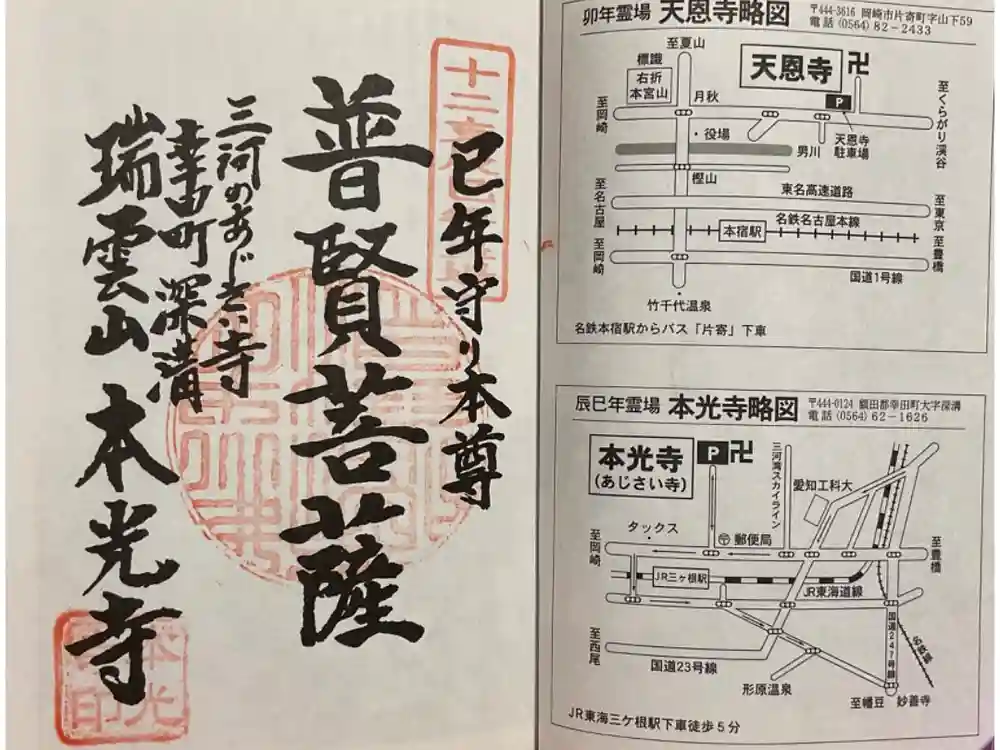 巳年守り本尊
普賢菩薩
三河のあじさい寺
幸田町深溝
瑞雲山 本光寺
卯年霊場 天恩寺略図
〒444-3616 岡崎市片寄町字山下59
電話 (0564) 82-2433
至夏山
標識
右折
本宮山
天恩寺
卍
P
月秋
至岡崎
至くらがり渓谷
・役場
天恩寺
駐車場
男川
樫山
至名古屋
東名高速道路
至東京
名鉄名古屋本線
本宿駅
至岡崎
至豊橋
国道1号線
竹千代温泉
名鉄本宿駅からバス「片寄」下車
辰巳年霊場 本光寺略図
〒444-0124 額田郡幸田町大字深溝
電話 (0564) 62-1626
本光寺
(あじさい寺)
P
卍
三河湾スカイライン
愛知工科大
タックス
〒郵便局
至岡崎
至豊橋
JR三ヶ根駅
JR東海道線
至西尾
国道23号線
国道247号線
形原温泉
至幡豆
妙善寺
JR東海三ケ根駅下車徒歩5分